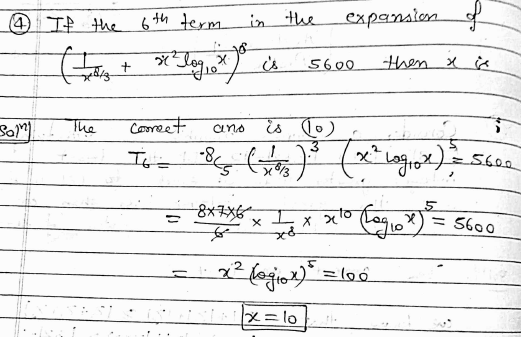 ④ If the 6th term in the expansion of
(1/x^8/3 + x² log₁₀x)^8 is 5600 then x is
Solⁿ] The correct ans is (10)
T₆ = ⁸C₅ (1/x^8/3)³ (x² log₁₀x)⁵ = 5600
= 8×7×6/6 × 1/x⁸ × x¹⁰ (log₁₀x)⁵ = 5600
= x² (log₁₀x)⁵ = 100
x = 10